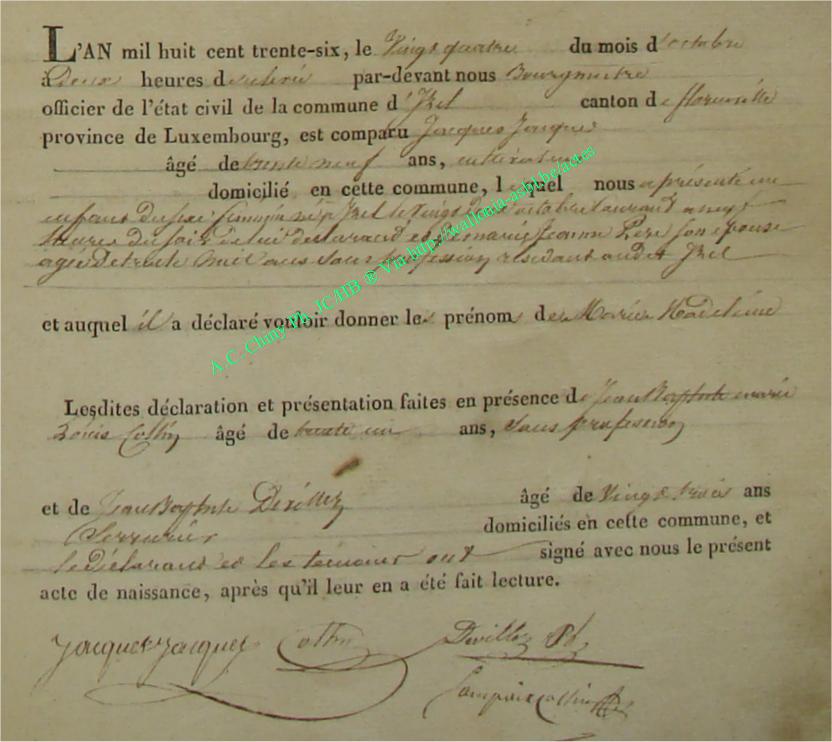 L'AN mil huit cent trente-six, le Vingt quatre du mois d'octobre
à Deux heures de relevée par-devant nous Bourgmestre
officier de l'état civil de la commune d'Izel canton de florenville
province de Luxembourg, est comparu Jacques Jacques
âgé de trente neuf ans, cultivateur
domicilié en cette commune, lequel nous a présenté un
enfant du sexe féminin né à Izel le vingt octobre courant a neuf
heures du soir de lui déclarant et de marie Jeanne son épouse
agée de trente ans sans profession résidant audit Izel
et auquel il a déclaré vouloir donner les prénoms de Marie Madeleine
Lesdites déclaration et présentation faites en présence de Jean Baptiste marie
Louis Collin âgé de trente un ans, sans profession
et de Jean Baptiste Devillez âgé de Vingt trois ans
Serrurier domiciliés en cette commune, et
le Déclarant et les temoins ont signé avec nous le présent
acte de naissance, après qu'il leur en a été fait lecture.
Jacques Jacques Collin Devillez
A.C. Chiny Ph. JC/HB ® Via http://wallonia-asbl.be/actes